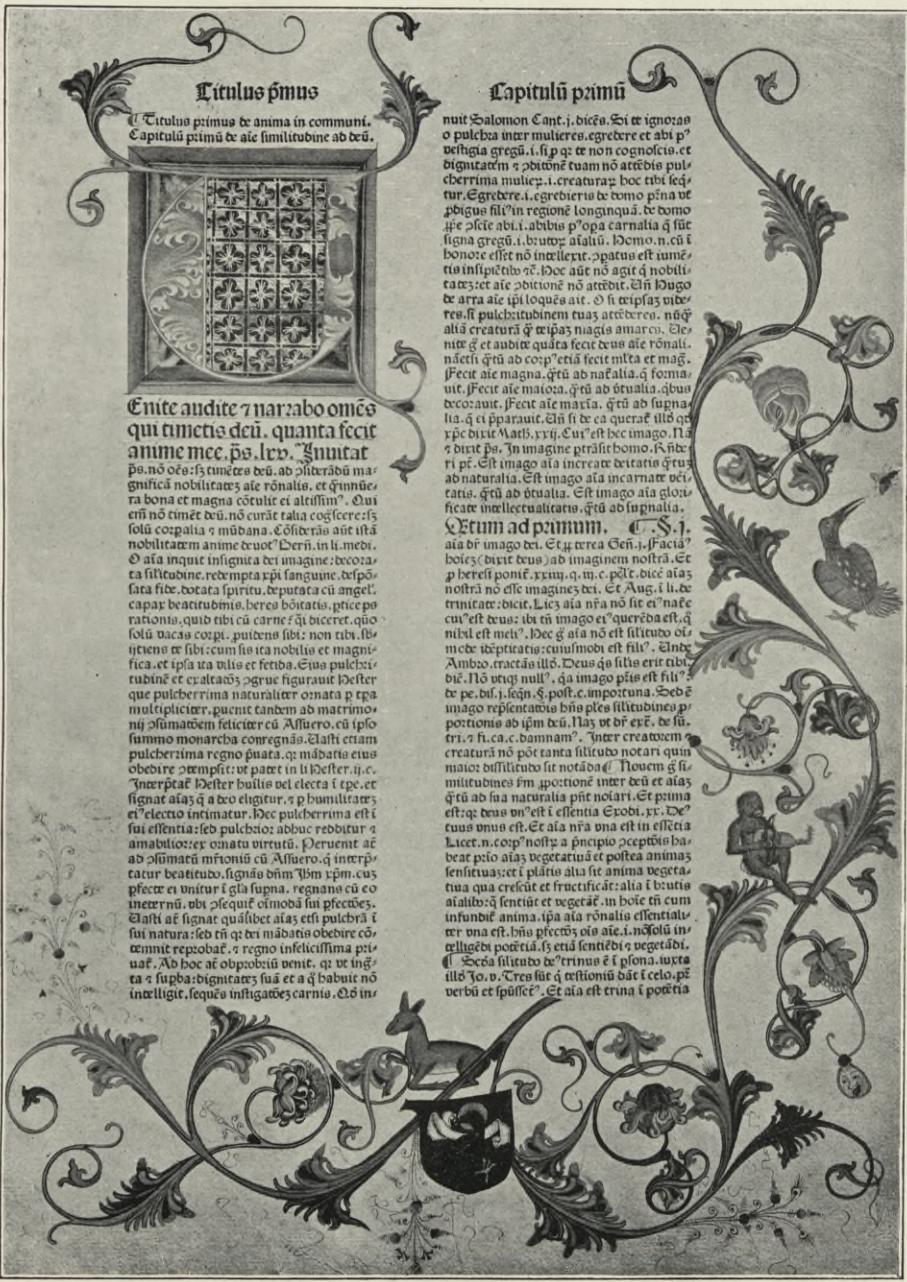 Titulus p̄mus
Titulus primus de anima in communi.
Capitulū primū de aīe similitudine ad deū.
Enite audite ⁊ narrabo omēs
qui timetis deū. quanta fecit
anime mee. p̄s. lxv. Inuitat
p̄s. nō oēs: sꝫ timētes deū. ad ꝯsiderādū ma-
gnificā nobilitateꝫ aīe rōnalis. et ꝙ innūe-
ra bona et magna cōtulit ei altissimꝰ. Qui
enī nō timēt deū. nō curāt talia cogꝰscere: sꝫ
solū corꝑalia ⁊ mūdana. Cōsiderās aūt istā
nobilitatem anime deuotꝰ Bern̄. in li. medi.
O aīa inquit insignita dei imagine: decora-
ta silitudine. redempta xp̄i sanguine. despō-
sata fide. dotata spiritu. deputata cū angel̄.
capax beatitudinis. heres bōitatis. ꝑticeps
rationis. quid tibi cū carne: q̄i diceret. quo
solū vacas corꝑi. ꝓuidens sibi: non tibi.
ijciens te sibi: cum sis ita nobilis et magni-
fica. et ipsa ita vilis et fetida. Eius pulchri-
tudinē et exaltatōeꝫ ꝯgrue figurauit Hester
que pulcherrima naturaliter ornata ꝑ tꝑa
multipliciter. ꝑuenit tandem ad matrimo-
nij ꝯsūmatōem feliciter cū Assuero. cū ipso
summo monarcha conregnās. Uasti etiam
pulcherrima regno p̄uata. qꝛ mādatis eius
obedire ꝯtempsit: vt patet in li Hester. ij. c.
Interp̄tat̄ Hester huīlis vel electa ī tꝑe. et
signat aīaꝫ q̄ a deo eligitur. ⁊ ꝑ humilitateꝫ
eiꝰ electio intimatur. Hec pulcherrima est ī
sui essentia: sed pulchrior adhuc redditur ⁊
amabilior: ex ornatu virtutū. Peruenit at̄
ad ꝯsūmatū mr̄ioniū cū Assuero. q̄ interp̄-
tatur beatitudo. signās dn̄m Jhm xp̄m. cuꝫ
ꝑfecte ei vnitur ī gl̄a supna. regnans cū eo
ineternū. vbi ꝯsequit̄ oīmodā sui ꝑfectōeꝫ.
Uasti at̄ signat quālibet aīaꝫ etsi pulchrā ī
sui natura: sed tn̄ qꝛ dei mādatis obedire cō-
temnit reprobat̄. ⁊ regno infelicissima pri-
uat̄. Ad hoc at̄ obprobriū venit. qꝛ vt ingꝰ-
ta ⁊ suꝑba: dignitateꝫ suā et a q̄ habuit nō
intelligit. sequēs instigatōeꝫ carnis. Qd in-
Capitulū primū
nuit Salomon Cant. j. dicēs. Si te ignoras
o pulchra inter mulieres. egredere et abi pꝰ
vestigia gregū. i. si ꝓ qꝛ te non cognoscis. et
dignitatem ⁊ ꝯditonē tuam nō attēdis pul-
cherrima mulieꝝ. i. creaturaꝝ hoc tibi seq̄-
tur. Egredere. i. egredieris de domo pr̄na vt
ꝓdigus filiꝰ in regionē longinquā. de domo
ꝓpe ꝯscīe abi. i. abibis pꝰ opa carnalia q̄ sūt
signa gregū. i. brutoꝝ aīaliū. Homo. n. cū ī
honore esset nō intellexit. ꝯꝑatus est iumē-
tis insipiētibꝰ ⁊c̄. Hoc aūt nō agit q̄ nobili-
tateꝫ: et aīe ꝯditionē nō attēdit. Un̄ Hugo
de arra aīe ip̄i loquēs ait. O si teipsaꝫ vide-
res. si pulchritudinem tuaꝫ attēderes. nūq̄
aliā creaturā q̄ teip̄aꝫ magis amares. Ue-
nite ḡ et audite quāta fecit deus aīe rōnali.
nā etsi q̄tū ad corpꝰ etiā fecit ml̄ta et maḡ.
Fecit aīe magna. q̄tū ad nat̄alia. q̄ forma-
uit. Fecit aīe maiora. q̄tū ad v̄tualia. q̄bus
decorauit. Fecit aīe maxīa. q̄tū ad supna-
lia. q̄ ei p̄parauit. Un̄ si de ea querat̄ illd qd
xp̄c dixit Math. xxij. Cuiꝰ est hec imago. Nā
⁊ dixit p̄s. In imagine ꝑtrāsit homo. Rn̄de-
ri pt̄. Est imago aīa increate deitatis q̄tuꝫ
ad naturalia. Est imago aīa incarnate vei-
tatis. q̄tū ad v̄tualia. Est imago aīa glori-
ficate intellectualitatis. q̄tū ad supnalia.
Qꝫtum ad primum. ¶ §. j.
aīa dr̄ imago dei. Et ꝓpterea Gen̄. j. Faciāꝰ
hoīeꝫ (dixit deus) ad imaginem nostrā. Et
ꝓ heresi ponit̄. xxiiij. q. iij. c. dicē aīaꝫ
nostrā nō esse imagineꝫ dei. Et Aug. ī li. de
trinitate: dicit. Licꝫ aīa nr̄a nō sit eiꝰ nat̄e
cuiꝰ est deus: ibi tn̄ imago eiꝰ querēda est. q̄
nihil est meliꝰ. Hec ḡ aīa nō est silitudo oī-
mode idēptitatis: cuiusmodi est filiꝰ. Unde
Ambro. tractās illd. Deus q̄s silis erit tibi.
diē. Nō vtiqꝫ nullꝰ. q̄a imago pr̄is est filiꝰ:
de pe. dis. j. seqn̄. §. post. c. importuna. Sed ē
imago rep̄sentatōis hn̄s ples silitudines ꝓ-
portionis ad ip̄m deū. Naꝫ vt dr̄ ext̄. de sū.
tri. ⁊ fi. ca. c. damnamꝰ. Inter creatorem ⁊
creaturā nō pōt tanta silitudo notari quin
maior dissilitudo sit notāda ¶ Nouem ḡ si-
militudines fm ꝓportionē inter deū et aīaꝫ
q̄tū ad sua naturalia pn̄t notari. Et prima
est: qꝛ deus vnꝰ est ī essentia Exodi. xx. Deꝰ
tuus vnus est. Et aīa nr̄a vna est in essētia
Licet. n. corpꝰ nostꝝ a pn̄cipio ꝯceptōis ha-
beat prio aīaꝫ vegetatiuā et postea animaꝫ
sensitiuaꝫ: et ī plātis alia sit anima vegeta-
tiua qua crescūt et fructificāt: alia ī brutis
aīalibꝰ: q̄ sentiūt et vegetāt. in hoīe tn̄ cum
infundit̄ anima. ip̄a aīa rōnalis essentiali-
ter vna est. hn̄s ꝑfectōꝫ oīs aīe. i. nōsolū in-
telligēdi potētiā. sꝫ etiā sentiēdi ⁊ vegetādi.
¶ Scd̄a silitudo deꝰ trinus ē ī ꝑsona. iuxta
illd Jo. v. Tres sūt q̄ testioniū dāt ī celo. pr̄
verbū et spūssct̄ꝰ. Et aīa est trina ī potētia